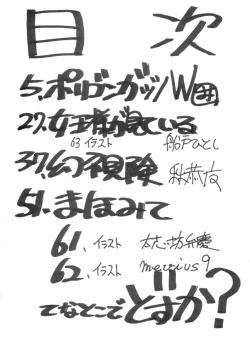 目次
5.ポリゴンガッツ/W団
27.女王様が見ている
63 イラスト 船戸ひとし
37.幻視険
51.まほみて
61.イラスト 太心坊弁慶
62.イラスト mercius9
てなとこでどすか?